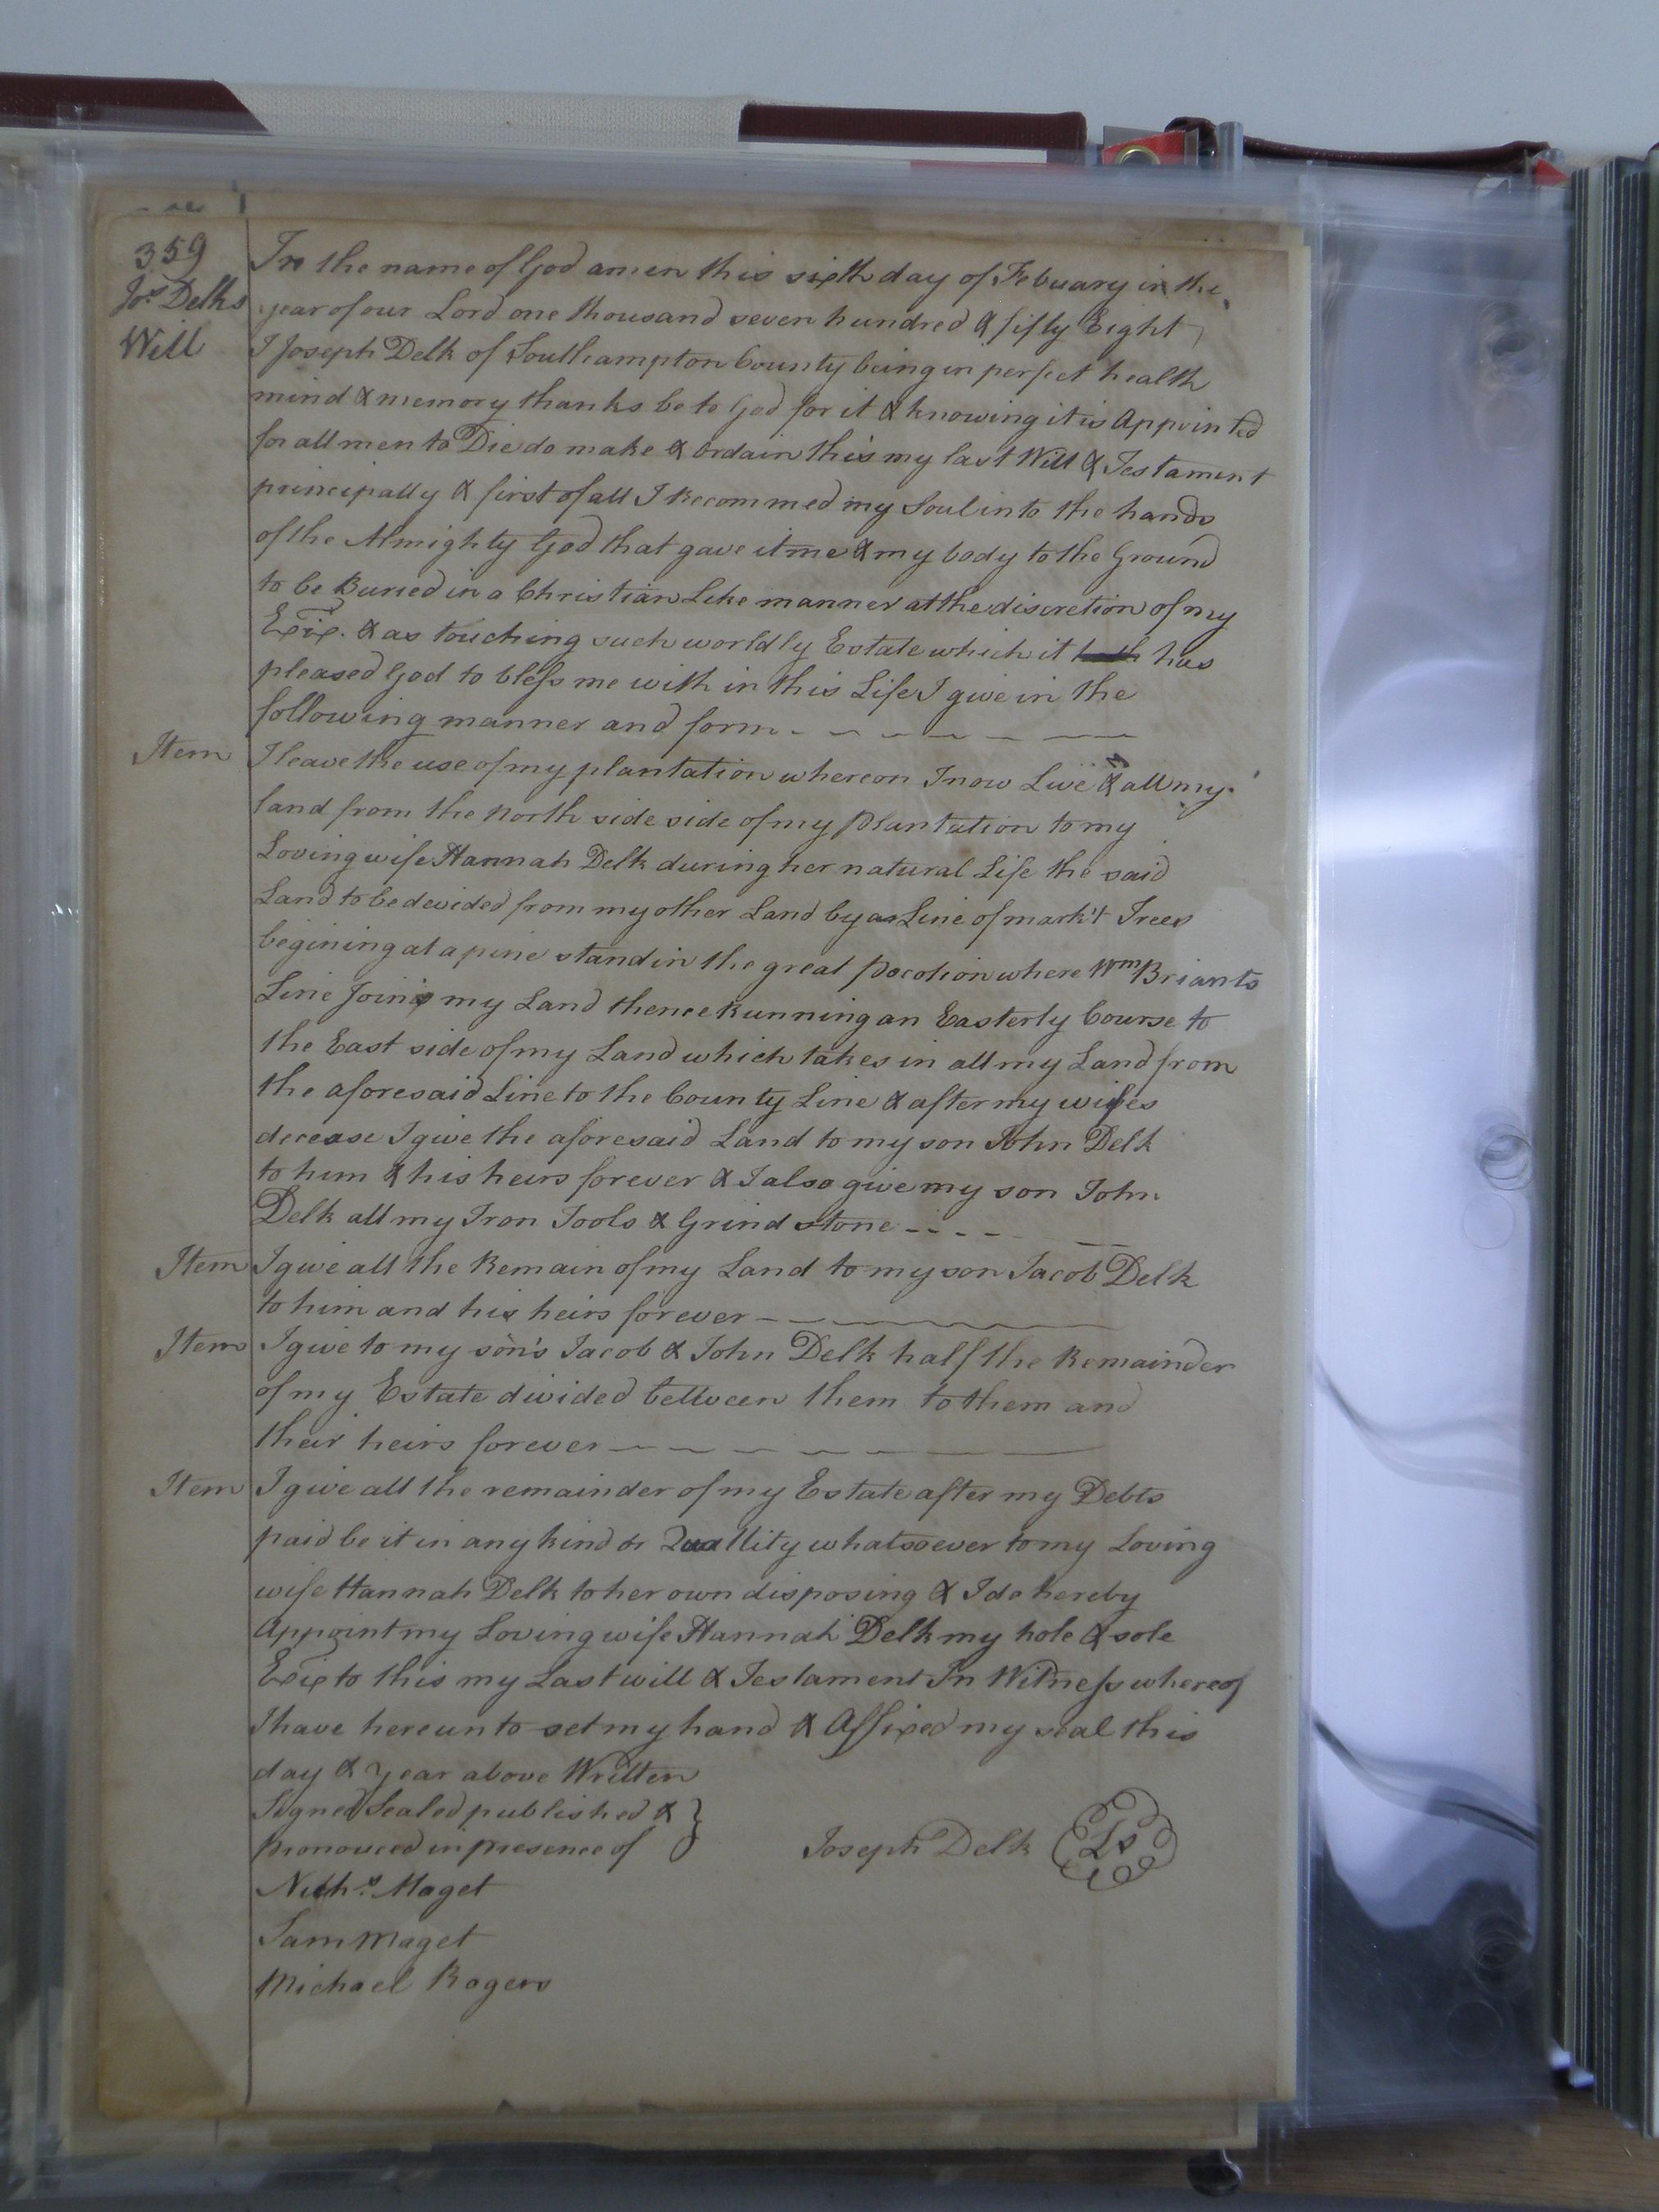 359
Jos. Delks
Will
In the name of God amen this sixth day of Febuary in the
year of our Lord one thousand seven hundred & fifty Eight
I Joseph Delk of Southampton County being in perfect health
mind & memory thanks be to God for it & knowing it is Appointed
for all men to Die do make & ordain this my last Will & Testament
principally & first of all I Recommed my Soul into the hands
of the Almighty God that gave it me & my body to the Ground
to be Buried in a Christian Like manner at the discretion of my
Exix. & as touching such worldly Estate which it has
pleased God to bless me with in this Life I give in the
following manner and form
Item I leave the use of my plantation whereon I now Live & all my
land from the North side side of my plantation to my
Loving wife Hannah Delk during her natural Life the said
Land to be devided from my other Land by a Line of mark't Trees
begining at a pine stand in the great Pocotion where Wm Briants
Line Joins my Land thence Running an Easterly Course to
the East side of my Land which takes in all my Land from
the aforesaid Line to the County Line & after my wifes
decease I give the aforesaid Land to my son John Delk
to him & his heirs forever & I also give my son John
Delk all my Iron Tools & Grind stone
Item I give all the Remain of my Land to my son Jacob Delk
to him and his heirs forever
Item I give to my son's Jacob & John Delk half the Remainder
of my Estate divided between them to them and
their heirs forever
Item I give all the remainder of my Estate after my Debts
paid be it in any kind or Quallity whatsoever to my Loving
wife Hannah Delk to her own disposing & I do hereby
Appoint my Loving wife Hannah Delk my hole & sole
Exix to this my Last will & Testament In Witness whereof
I have hereunto set my hand & Affixed my seal this
day & year above Written
Signed Sealed published &
pronouced in presence of
Joseph Delk Ls
Nichs. Maget
Sam Maget
Michael Rogers